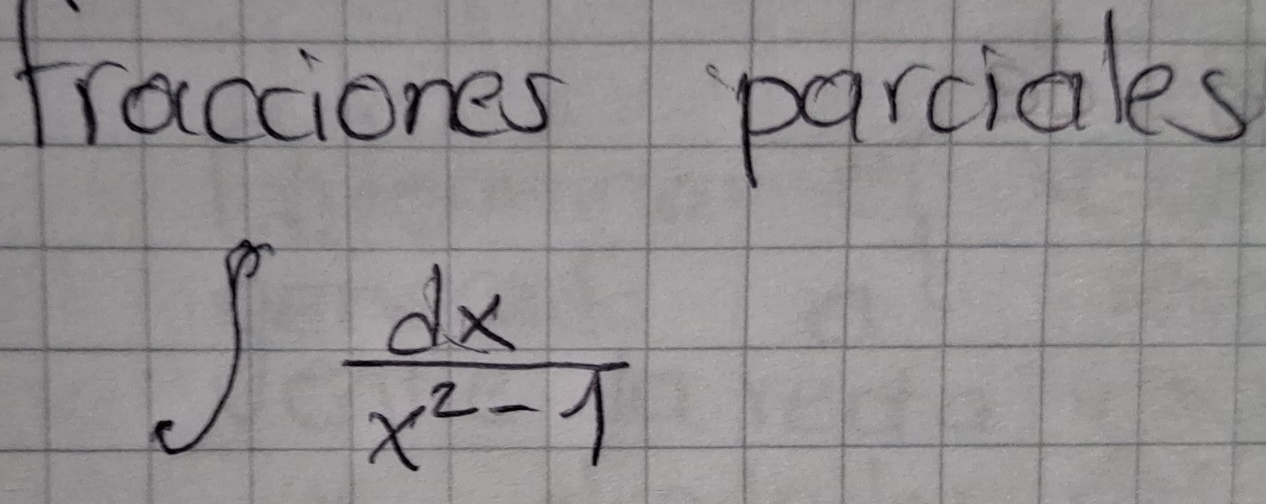 fracciones parciales
∫ dx
x² - 1